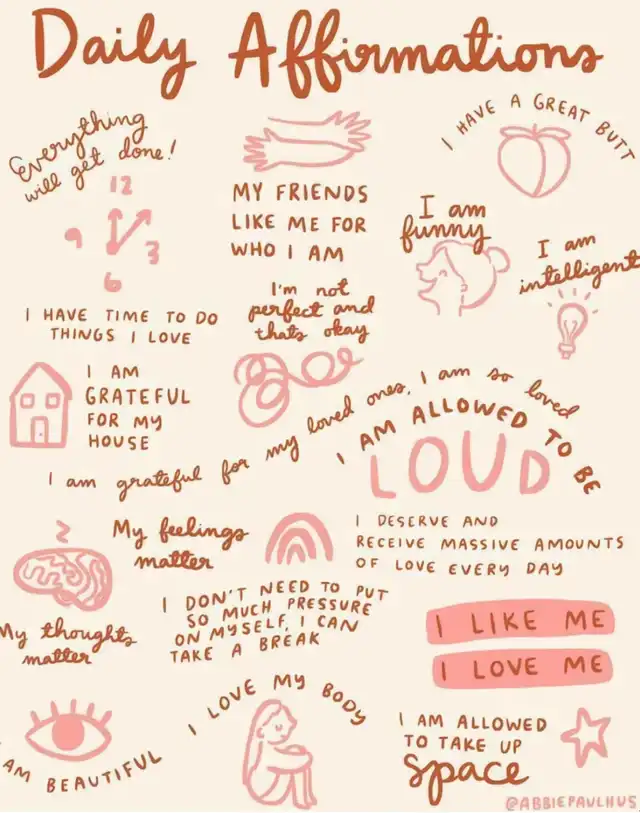 Daily Affirmations
Everything
will get done!
12
9
3
6
I HAVE TIME TO DO
THINGS I LOVE
MY FRIENDS
LIKE ME FOR
WHO I AM
I HAVE A GREAT BUTT
I am
funny
I am
intelligent
I'm not
perfect and
thats okay
I AM
GRATEFUL
FOR MY
HOUSE
I am grateful for my loved ones, I am so loved
I AM ALLOWED TO BE
LOUD
My feelings
matter
I DESERVE AND
RECEIVE MASSIVE AMOUNTS
OF LOVE EVERY DAY
2
My thoughts
matter
I DON'T NEED TO PUT
SO MUCH PRESSURE
ON MYSELF, I CAN
TAKE A BREAK
I LIKE ME
I LOVE ME
AM BEAUTIFUL
I LOVE MY BODY
I AM ALLOWED
TO TAKE UP
space
@ABBIEPAULHUS